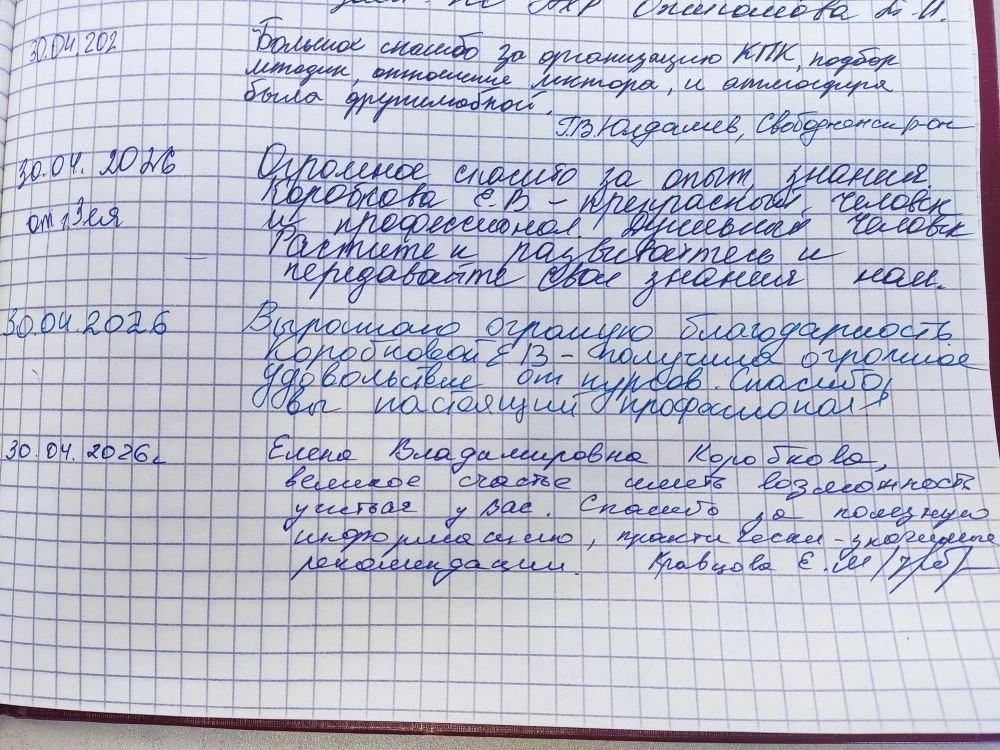 АХР
30.04.202 Большое спасибо за организацию КПК, подбор
методик, отношение лектора, и атмосфера
была дружелюбной.
Свободненский р-он
30.04. 2026 Огромное спасибо за опыт, знания.
Коробкова Е.В – прекрасный, человек
и профессионал. Душевный человек
Растите и развивайтесь и
передавайте свои знания нам.
30.04.2026 Выражаю огромную благодарность
Коробковой Е В – получила огромное
удовольствие от курсов. Спасибо,
вы настоящий професионал
30.04. 2026г Елена Владимировна Коробкова,
великое счастье иметь возможность
учиться у Вас. Спасибо за полезную
информацию, практически-значимые
рекомендации. Кравцова Е.М